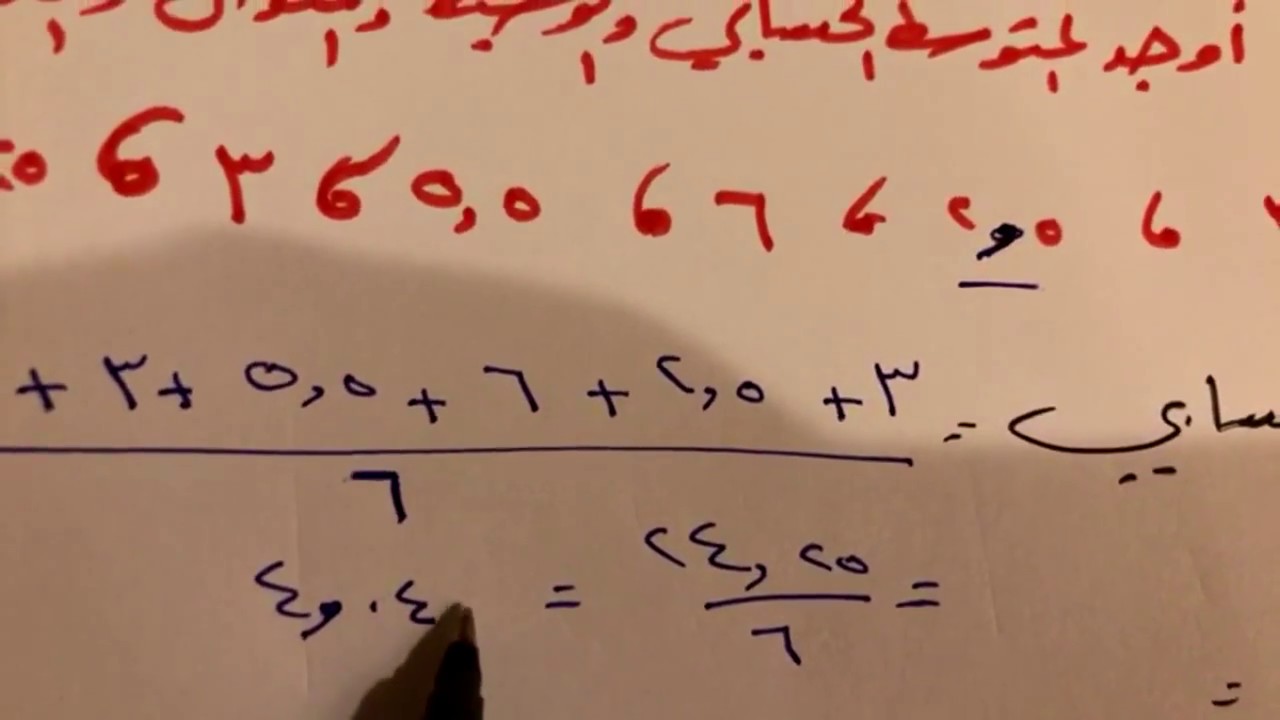 أوجد المتوسط الحسابي والوسيط والمنوال
، ٢,٥ ، ٦ ، ٥,٥ ، ٣ ،
سابي = ٣ + ٢,٥ + ٦ + ٥,٥ + ٣ +
٦
= ٢٤,٢٥ = ٤,٠٤
٦
=